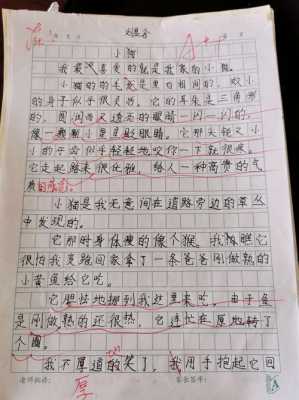 小猫
我最喜爱的就是我家的小猫。
小猫的的毛发是黑白相间的，奴小
的身子似乎很灵巧。它的耳朵是三角形
的，圆润而又透亮的眼睛一闪一闪的，
像一颗颗小星星眨眼睛。它那尖锐又小
小的牙齿似乎轻轻地咬你一下就很疼。
它走起路来很优雅，给人一种高贵的气
质
小猫是我无意间在道路旁边的草丛
中发现的。
它那时身体瘦的像个猴。我怕瞧它
很怕我克跑回家拿了一条爸爸刚做熟的
小黄鱼给它吃。
它胆怯地挪到我这里来吃。由于鱼
是刚做熟的还很热，它连忙在原地转了
个圈。
我不厚道的笑了，我用手抱起它回
老师批语：
厚
家长签字：